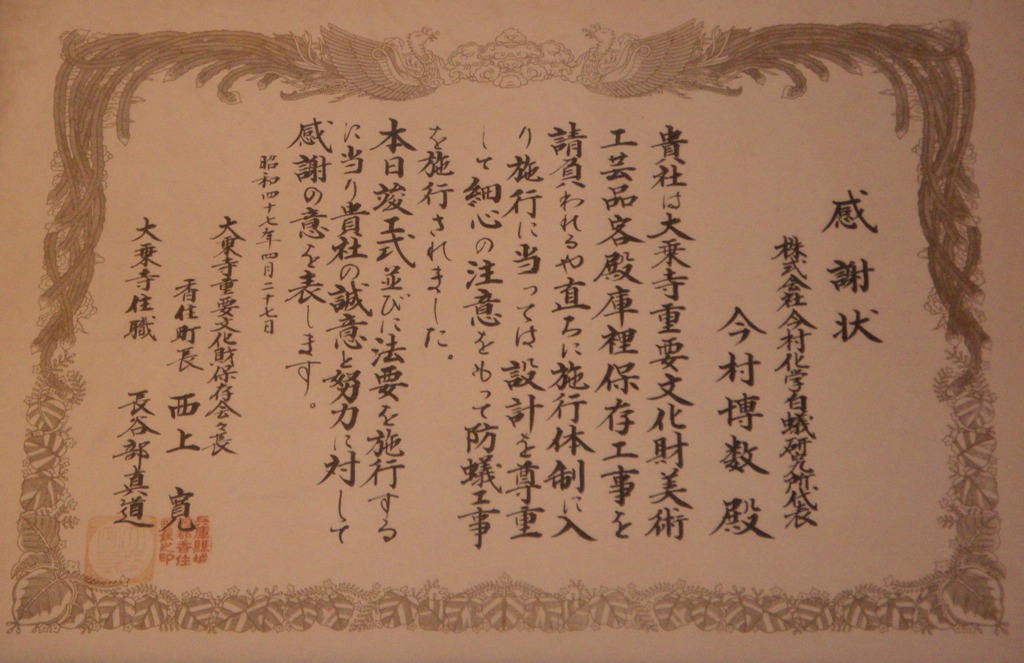 感謝状
株式会社今村化学白蟻研究所代表
今村博数殿
貴社は大乗寺重要文化財美術
工芸品客殿庫裡保存工事を
請負われるや直ちに施行体制に入
り施行に当っては設計を尊重
して細心の注意をもって防蟻工事
を施行されました。
本日竣工式並びに法要を施行する
に当り貴社の誠意と努力に対して
感謝の意を表します。
昭和四十七年四月二十七日
大乗寺重要文化財保存会々長
香住町長 西上 寛
大乗寺住職 長谷部真道